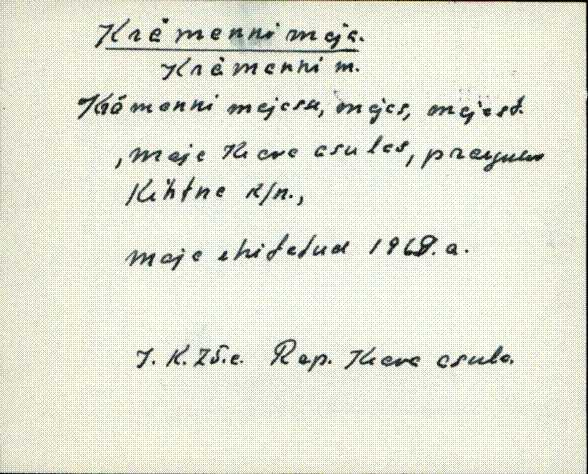 Krämenni maja.
Krämenni m.
Krämenni majasse, majas, majast.
, maja Keava asulas, praegune
Kehtna k/n.,
maja ehitatud 1968. a.
J. K. Rap. Keava asula.